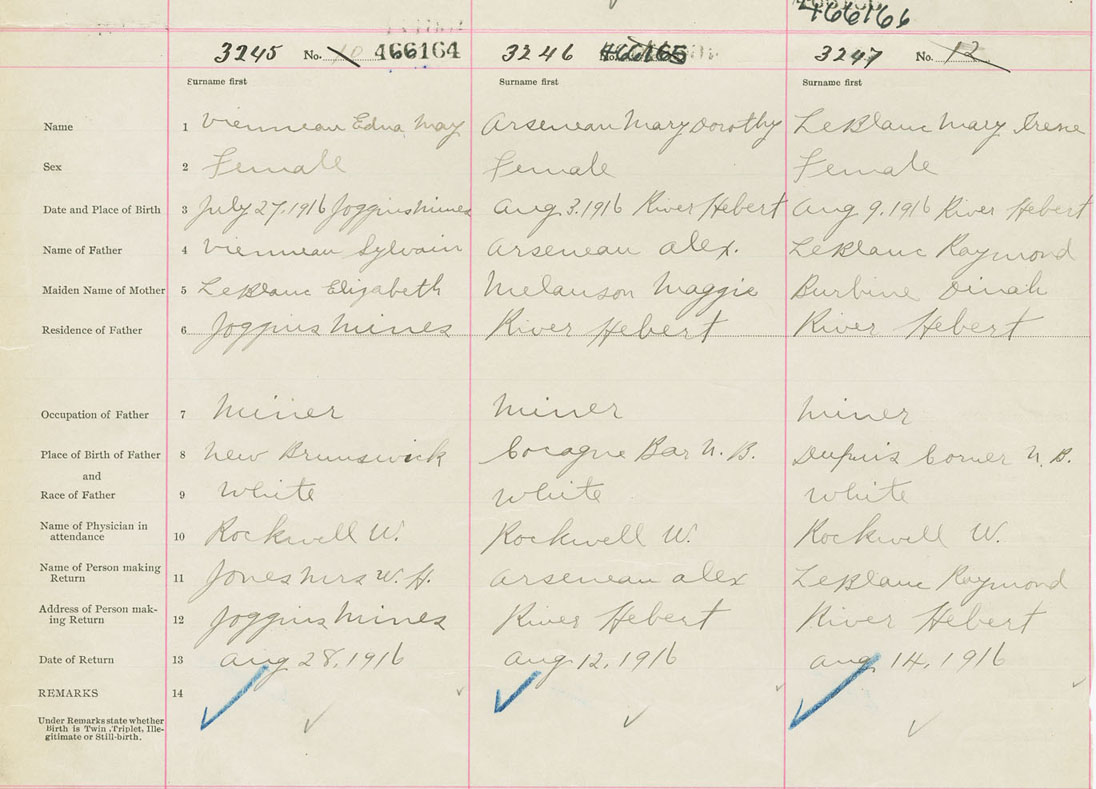 466166
3245 No. 10 466164 3246 No. 466165 3247 No. 12
Surname first Surname first Surname first
Name 1 Vienneau Edna May Arseneau Mary Dorothy LeBlanc Mary Irene
Sex 2 Female Female Female
Date and Place of Birth 3 July 27, 1916 Joggins Mines Aug 3, 1916 River Hebert Aug 9, 1916 River Hebert
Name of Father 4 Vienneau Sylvain Arseneau Alex. LeBlanc Raymond
Maiden Name of Mother 5 LeBlanc Elizabeth Melanson Maggie Burbine Dinah
Residence of Father 6 Joggins Mines River Hebert River Hebert
Occupation of Father 7 Miner Miner Miner
Place of Birth of Father 8 New Brunswick Cocagne Bar N. B. Dupuis Corner N. B.
and
Race of Father 9 White White White
Name of Physician in
attendance 10 Rockwell W. Rockwell W. Rockwell W.
Name of Person making
Return 11 Jones Mrs W. H. Arseneau Alex LeBlanc Raymond
Address of Person mak-
ing Return 12 Joggins Mines River Hebert River Hebert
Date of Return 13 Aug 28, 1916 Aug 12, 1916 Aug 14, 1916
REMARKS 14
Under Remarks state whether
Birth is Twin, Triplet, Ille-
gitimate or Still-birth.